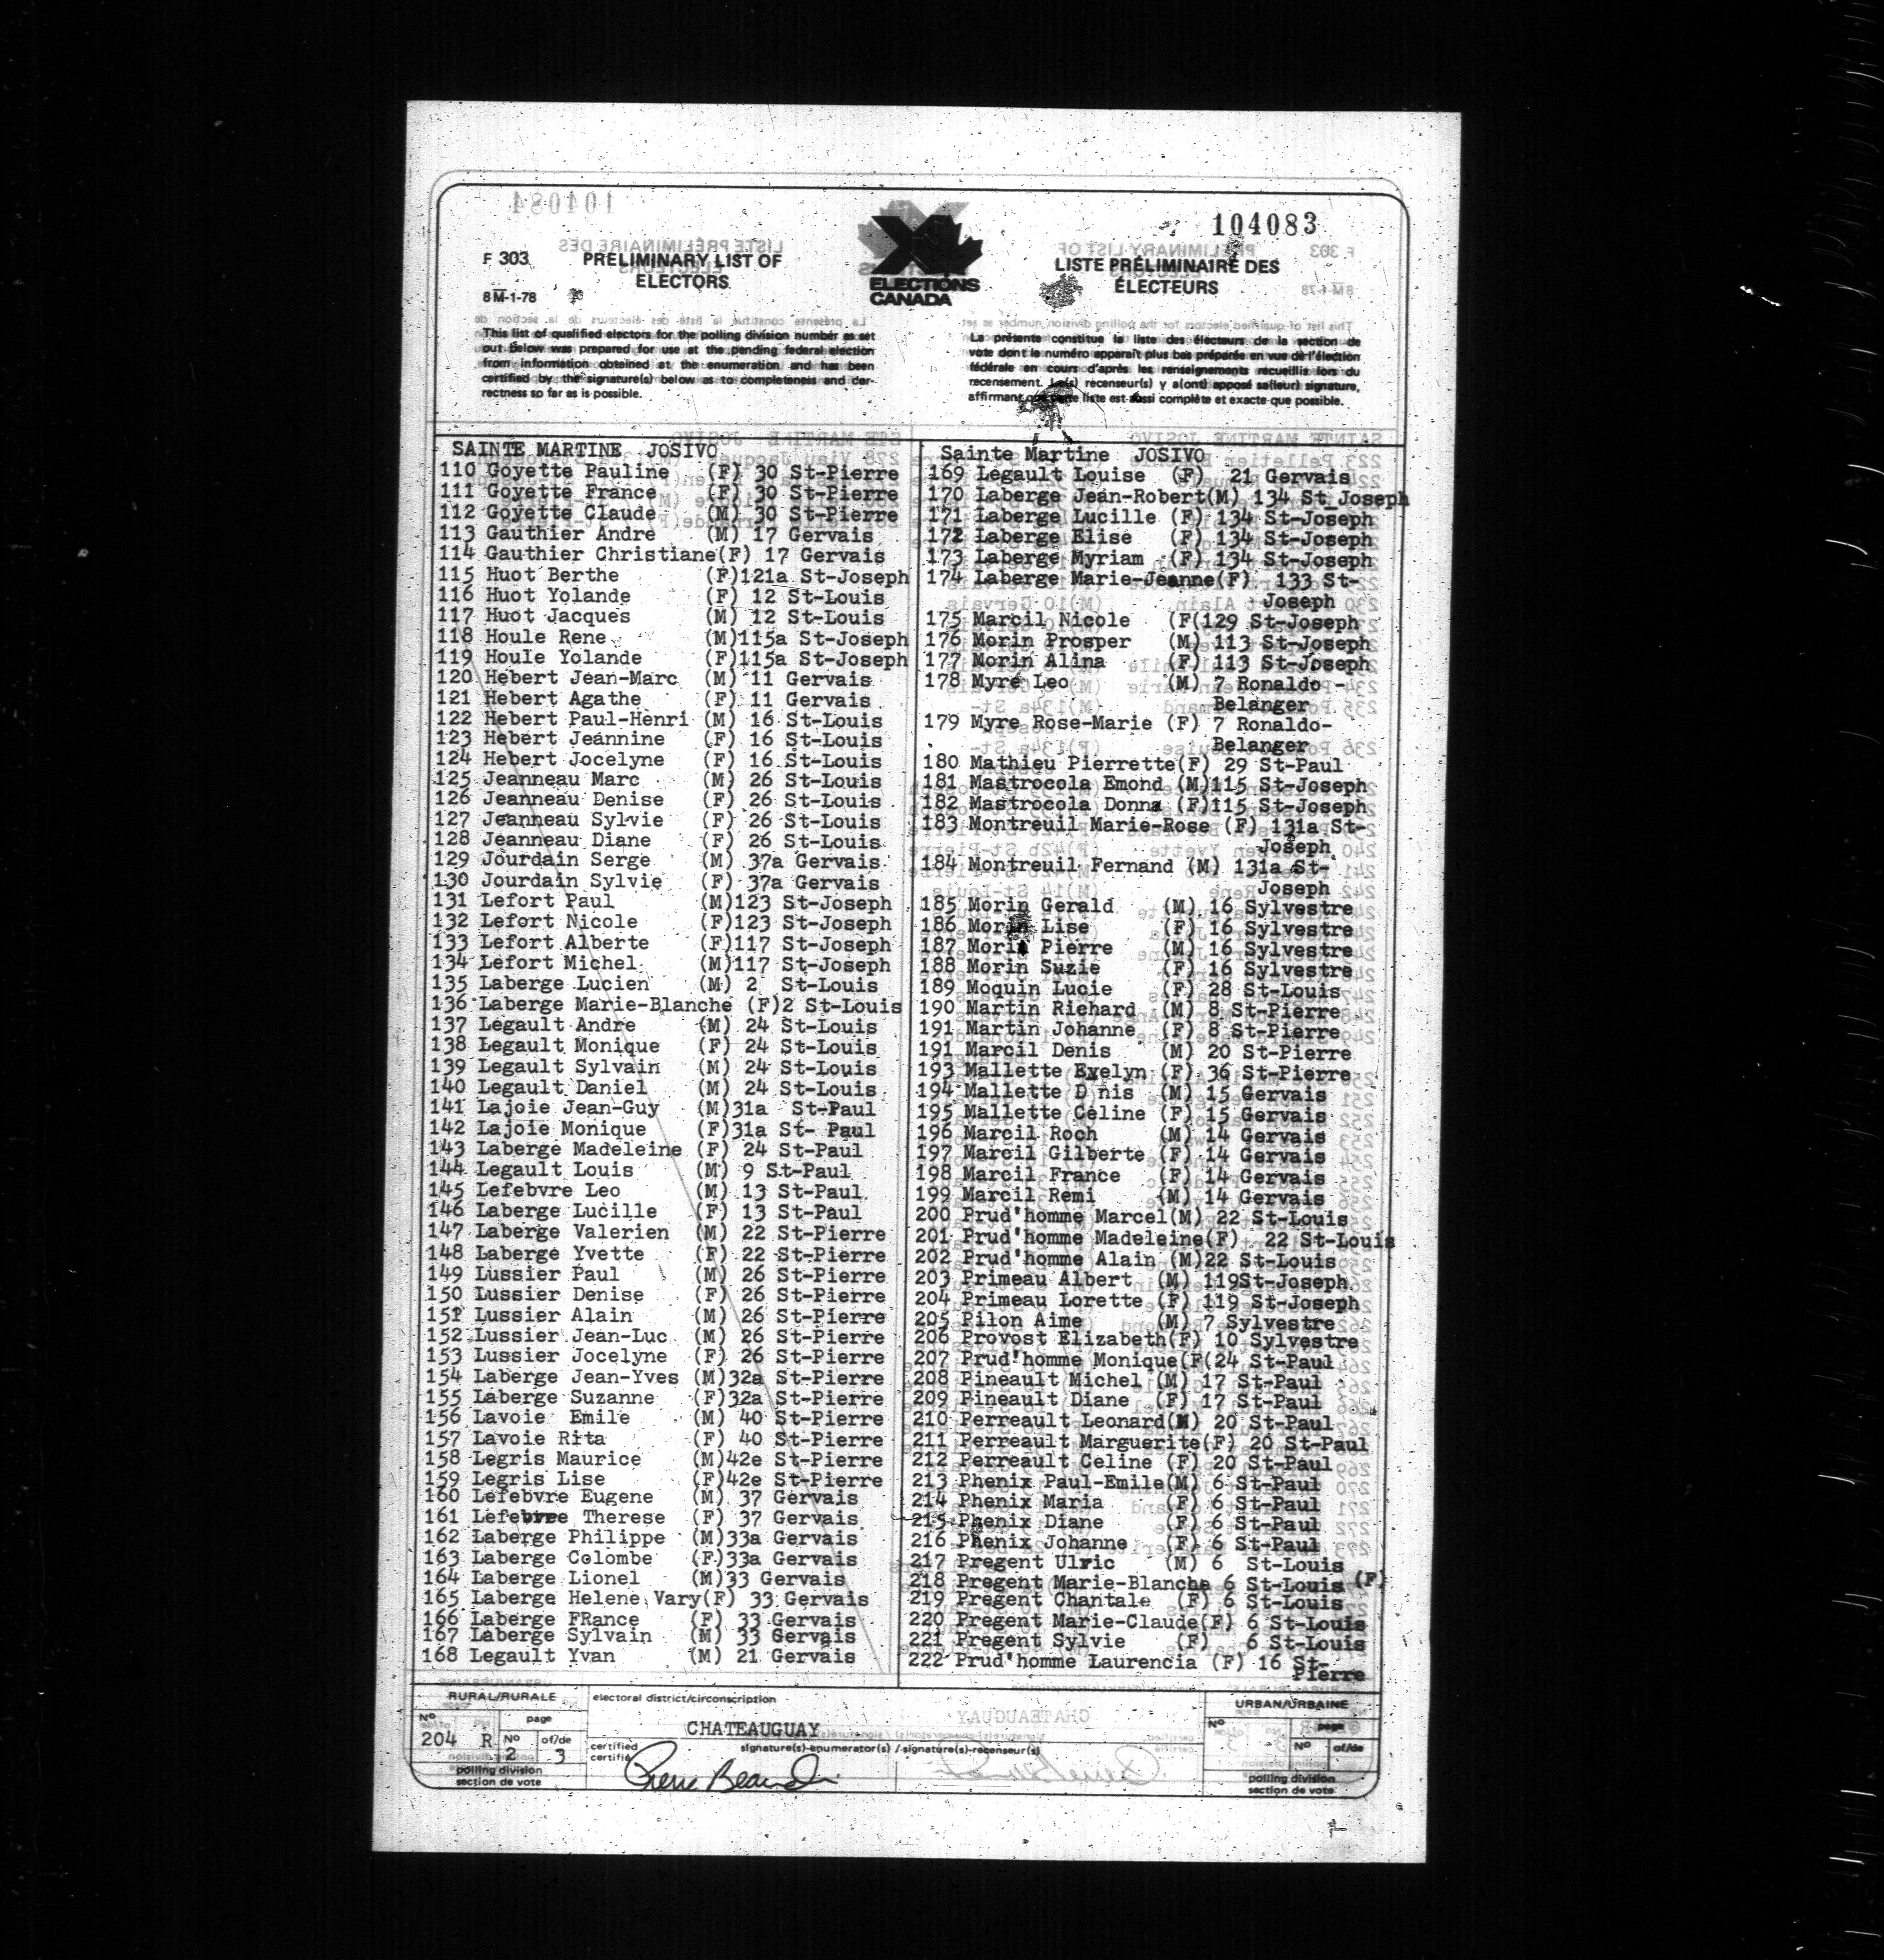 104083
F 303 PRELIMINARY LIST OF
ELECTORS
8 M-1-78
ELECTIONS
CANADA
LISTE PRÉLIMINAIRE DES
ÉLECTEURS
This list of qualified electors for the polling division number as set
out below was prepared for use at the pending federal election
from information obtained at the enumeration and has been
certified by the signature(s) below as to completeness and cor-
rectness so far as is possible.
La présente constitue la liste des électeurs de la section de
vote dont le numéro apparaît plus bas préparée en vue de l'élection
fédérale en cours d'après les renseignements recueillis lors du
recensement. Le(s) recenseur(s) y a(ont) apposé sa(leur) signature,
affirmant que cette liste est aussi complète et exacte que possible.
SAINTE MARTINE JOSIVO
110 Goyette Pauline (F) 30 St-Pierre
111 Goyette France (F) 30 St-Pierre
112 Goyette Claude (M) 30 St-Pierre
113 Gauthier Andre (M) 17 Gervais
114 Gauthier Christiane(F) 17 Gervais
115 Huot Berthe (F)121a St-Joseph
116 Huot Yolande (F) 12 St-Louis
117 Huot Jacques (M) 12 St-Louis
118 Houle Rene (M)115a St-Joseph
119 Houle Yolande (F)115a St-Joseph
120 Hebert Jean-Marc (M) 11 Gervais
121 Hebert Agathe (F) 11 Gervais
122 Hebert Paul-Henri (M) 16 St-Louis
123 Hebert Jeannine (F) 16 St-Louis
124 Hebert Jocelyne (F) 16 St-Louis
125 Jeanneau Marc (M) 26 St-Louis
126 Jeanneau Denise (F) 26 St-Louis
127 Jeanneau Sylvie (F) 26 St-Louis
128 Jeanneau Diane (F) 26 St-Louis
129 Jourdain Serge (M) 37a Gervais
130 Jourdain Sylvie (F) 37a Gervais
131 Lefort Paul (M)123 St-Joseph
132 Lefort Nicole (F)123 St-Joseph
133 Lefort Alberte (F)117 St-Joseph
134 Lefort Michel (M)117 St-Joseph
135 Laberge Lucien (M) 2 St-Louis
136 Laberge Marie-Blanche (F)2 St-Louis
137 Legault Andre (M) 24 St-Louis
138 Legault Monique (F) 24 St-Louis
139 Legault Sylvain (M) 24 St-Louis
140 Legault Daniel (M) 24 St-Louis
141 Lajoie Jean-Guy (M)31a St-Paul
142 Lajoie Monique (F)31a St- Paul
143 Laberge Madeleine (F) 24 St-Paul
144 Legault Louis (M) 9 St-Paul
145 Lefebvre Leo (M) 13 St-Paul
146 Laberge Lucille (F) 13 St-Paul
147 Laberge Valerien (M) 22 St-Pierre
148 Laberge Yvette (F) 22 St-Pierre
149 Lussier Paul (M) 26 St-Pierre
150 Lussier Denise (F) 26 St-Pierre
151 Lussier Alain (M) 26 St-Pierre
152 Lussier Jean-Luc (M) 26 St-Pierre
153 Lussier Jocelyne (F) 26 St-Pierre
154 Laberge Jean-Yves (M)32a St-Pierre
155 Laberge Suzanne (F)32a St-Pierre
156 Lavoie Emile (M) 40 St-Pierre
157 Lavoie Rita (F) 40 St-Pierre
158 Legris Maurice (M)42e St-Pierre
159 Legris Lise (F)42e St-Pierre
160 Lefebvre Eugene (M) 37 Gervais
161 Lefebvre Therese (F) 37 Gervais
162 Laberge Philippe (M)33a Gervais
163 Laberge Colombe (F)33a Gervais
164 Laberge Lionel (M)33 Gervais
165 Laberge Helene Vary(F) 33 Gervais
166 Laberge FRance (F) 33 Gervais
167 Laberge Sylvain (M) 33 Gervais
168 Legault Yvan (M) 21 Gervais
Sainte Martine JOSIVO
169 Legault Louise (F) 21 Gervais
170 Laberge Jean-Robert(M) 134 St Joseph
171 Laberge Lucille (F) 134 St-Joseph
172 Laberge Elise (F) 134 St-Joseph
173 Laberge Myriam (F) 134 St-Joseph
174 Laberge Marie-Jeanne(F) 133 St-
Joseph
175 Marcil Nicole (F(129 St-Joseph
176 Morin Prosper (M) 113 St-Joseph
177 Morin Alina (F) 113 St-Joseph
178 Myre Leo (M) 7 Ronaldo -
Belanger
179 Myre Rose-Marie (F) 7 Ronaldo-
Belanger
180 Mathieu Pierrette(F) 29 St-Paul
181 Mastrocola Emond (M)115 St-Joseph
182 Mastrocola Donna (F)115 St-Joseph
183 Montreuil Marie-Rose (F) 131a St-
Joseph
184 Montreuil Fernand (M) 131a St-
Joseph
185 Morin Gerald (M) 16 Sylvestre
186 Morin Lise (F) 16 Sylvestre
187 Morin Pierre (M) 16 Sylvestre
188 Morin Suzie (F) 16 Sylvestre
189 Moquin Lucie (F) 28 St-Louis
190 Martin Richard (M) 8 St-Pierre
191 Martin Johanne (F) 8 St-Pierre
191 Marcil Denis (M) 20 St-Pierre
193 Mallette Evelyn (F) 36 St-Pierre
194 Mallette D nis (M) 15 Gervais
195 Mallette Celine (F) 15 Gervais
196 Marcil Roch (M) 14 Gervais
197 Marcil Gilberte (F) 14 Gervais
198 Marcil France (F) 14 Gervais
199 Marcil Remi (M) 14 Gervais
200 Prud'homme Marcel(M) 22 St-Louis
201 Prud'homme Madeleine(F) 22 St-Louis
202 Prud'homme Alain (M)22 St-Louis
203 Primeau Albert (M) 119St-Joseph
204 Primeau Lorette (F) 119 St-Joseph
205 Pilon Aime (M) 7 Sylvestre
206 Provost Elizabeth(F) 10 Sylvestre
207 Prud'homme Monique(F(24 St-Paul
208 Pineault Michel (M) 17 St-Paul
209 Pineault Diane (F) 17 St-Paul
210 Perreault Leonard(M) 20 St-Paul
211 Perreault Marguerite(F) 20 St-Paul
212 Perreault Celine (F) 20 St-Paul
213 Phenix Paul-Emile(M) 6 St-Paul
214 Phenix Maria (F) 6 St-Paul
215 Phenix Diane (F) 6 St-Paul
216 Phenix Johanne (F) 6 St-Paul
217 Pregent Ulric (M) 6 St-Louis
218 Pregent Marie-Blanche 6 St-Louis (F)
219 Pregent Chantale (F) 6 St-Louis
220 Pregent Marie-Claude(F) 6 St-Louis
221 Pregent Sylvie (F) 6 St-Louis
222 Prud'homme Laurencia (F) 16 St-
Pierre
RURAL/RURALE
No
204 R
page
No
2
of/de
3
polling division
section de vote
electoral district/circonscription
CHATEAUGUAY
certified
certifié
signature(s)-enumerator(s) / signature(s)-recenseur(s)
URBAN/URBAINE
No
page
No
of/de
polling division
section de vote